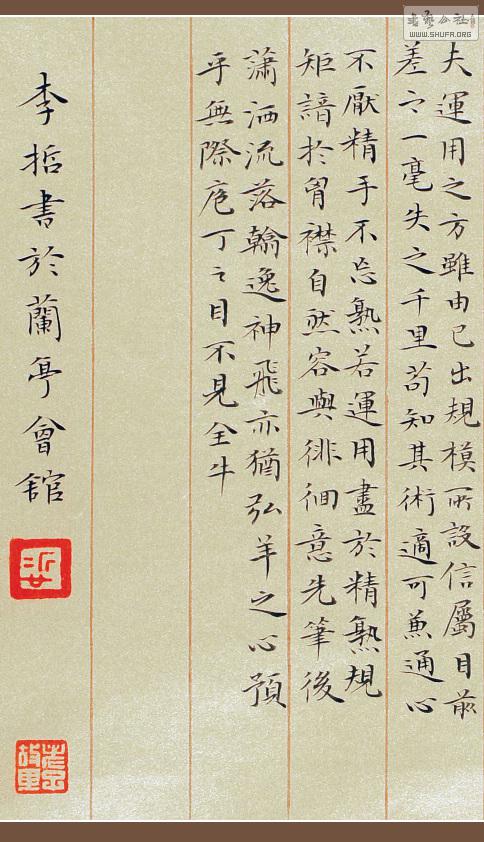 夫運用之方雖由己出規模所設信屬目前
差之一毫失之千里苟知其術適可兼通心
不厭精手不忘熟若運用盡於精熟規
矩諳於胷襟自然容與徘徊意先筆後
瀟洒流落翰逸神飛亦猶弘羊之心預
乎無際庖丁之目不見全牛
李哲書於蘭亭會館
老子故里
書藝公社
WWW.SHUFA.ORG